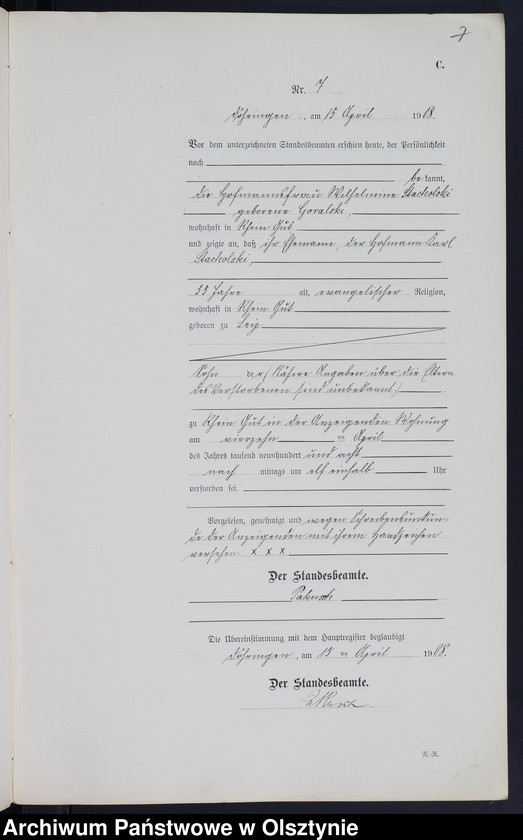 7
C.
Nr. 7
Döhringen, am 15 April 1908.
Vor dem unterzeichneten Standesbeamten erschien heute, der Persönlichkeit
nach
be kannt,
die Hofmannsfrau Wilhelmine Stacholski
geborene Goralski,
wohnhaft in Rhein Gut
und zeigte an, daß ihr Ehemann, der Hofmann Karl
Stacholski,
55 Jahre alt, evangelischer Religion,
wohnhaft in Rhein Gut
geboren zu Leip
Sohn der (Nähere Angaben über die Eltern
des Verstorbenen sind unbekannt.)
zu Rhein Gut in der Anzeigenden Wohnung
am vierzehn ten April
des Jahres tausend neunhundert und acht
nach mittags um elf einhalb Uhr
verstorben sei.
Vorgelesen, genehmigt und wegen Schreibensunkun-
de der Anzeigenden mit ihrem Handzeichen
versehen x x x
Der Standesbeamte.
Die Übereinstimmung mit dem Hauptregister beglaubigt
Döhringen, am 15 ten April 1908.
Der Standesbeamte.
N.-R.
Archiwum Państwowe w Olsztynie